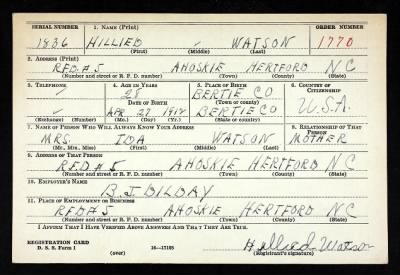 SERIAL NUMBER 1. NAME (Print) ORDER NUMBER
1836 HILLIED - WATSON 1770
(First) (Middle) (Last)
2. ADDRESS (Print)
RFD#5 AHOSKIE HERTFORD NC
(Number and street or R. F. D. number) (Town) (County) (State)
3. TELEPHONE 4. AGE IN YEARS 5. PLACE OF BIRTH 6. COUNTRY OF CITIZENSHIP
28 BERTIE CO
DATE OF BIRTH (Town or county)
APR 27 1912 BERTIE CO U.S.A.
(Exchange) (Number) (Mo.) (Day) (Yr.) (State or country)
7. NAME OF PERSON WHO WILL ALWAYS KNOW YOUR ADDRESS 8. RELATIONSHIP OF THAT PERSON
MRS. IDA WATSON MOTHER
(Mr., Mrs., Miss) (First) (Middle) (Last)
9. ADDRESS OF THAT PERSON
RFD#5 AHOSKIE HERTFORD NC
(Number and street or R. F. D. number) (Town) (County) (State)
10. EMPLOYER'S NAME
B.J. DILDAY
11. PLACE OF EMPLOYMENT OR BUSINESS
RFD#5 AHOSKIE HERTFORD NC
(Number and street or R. F. D. number) (Town) (County) (State)
I AFFIRM THAT I HAVE VERIFIED ABOVE ANSWERS AND THAT THEY ARE TRUE.
REGISTRATION CARD
D. S. S. Form 1 (over) 16—17105 Hillied Watson
(Registrant's signature)